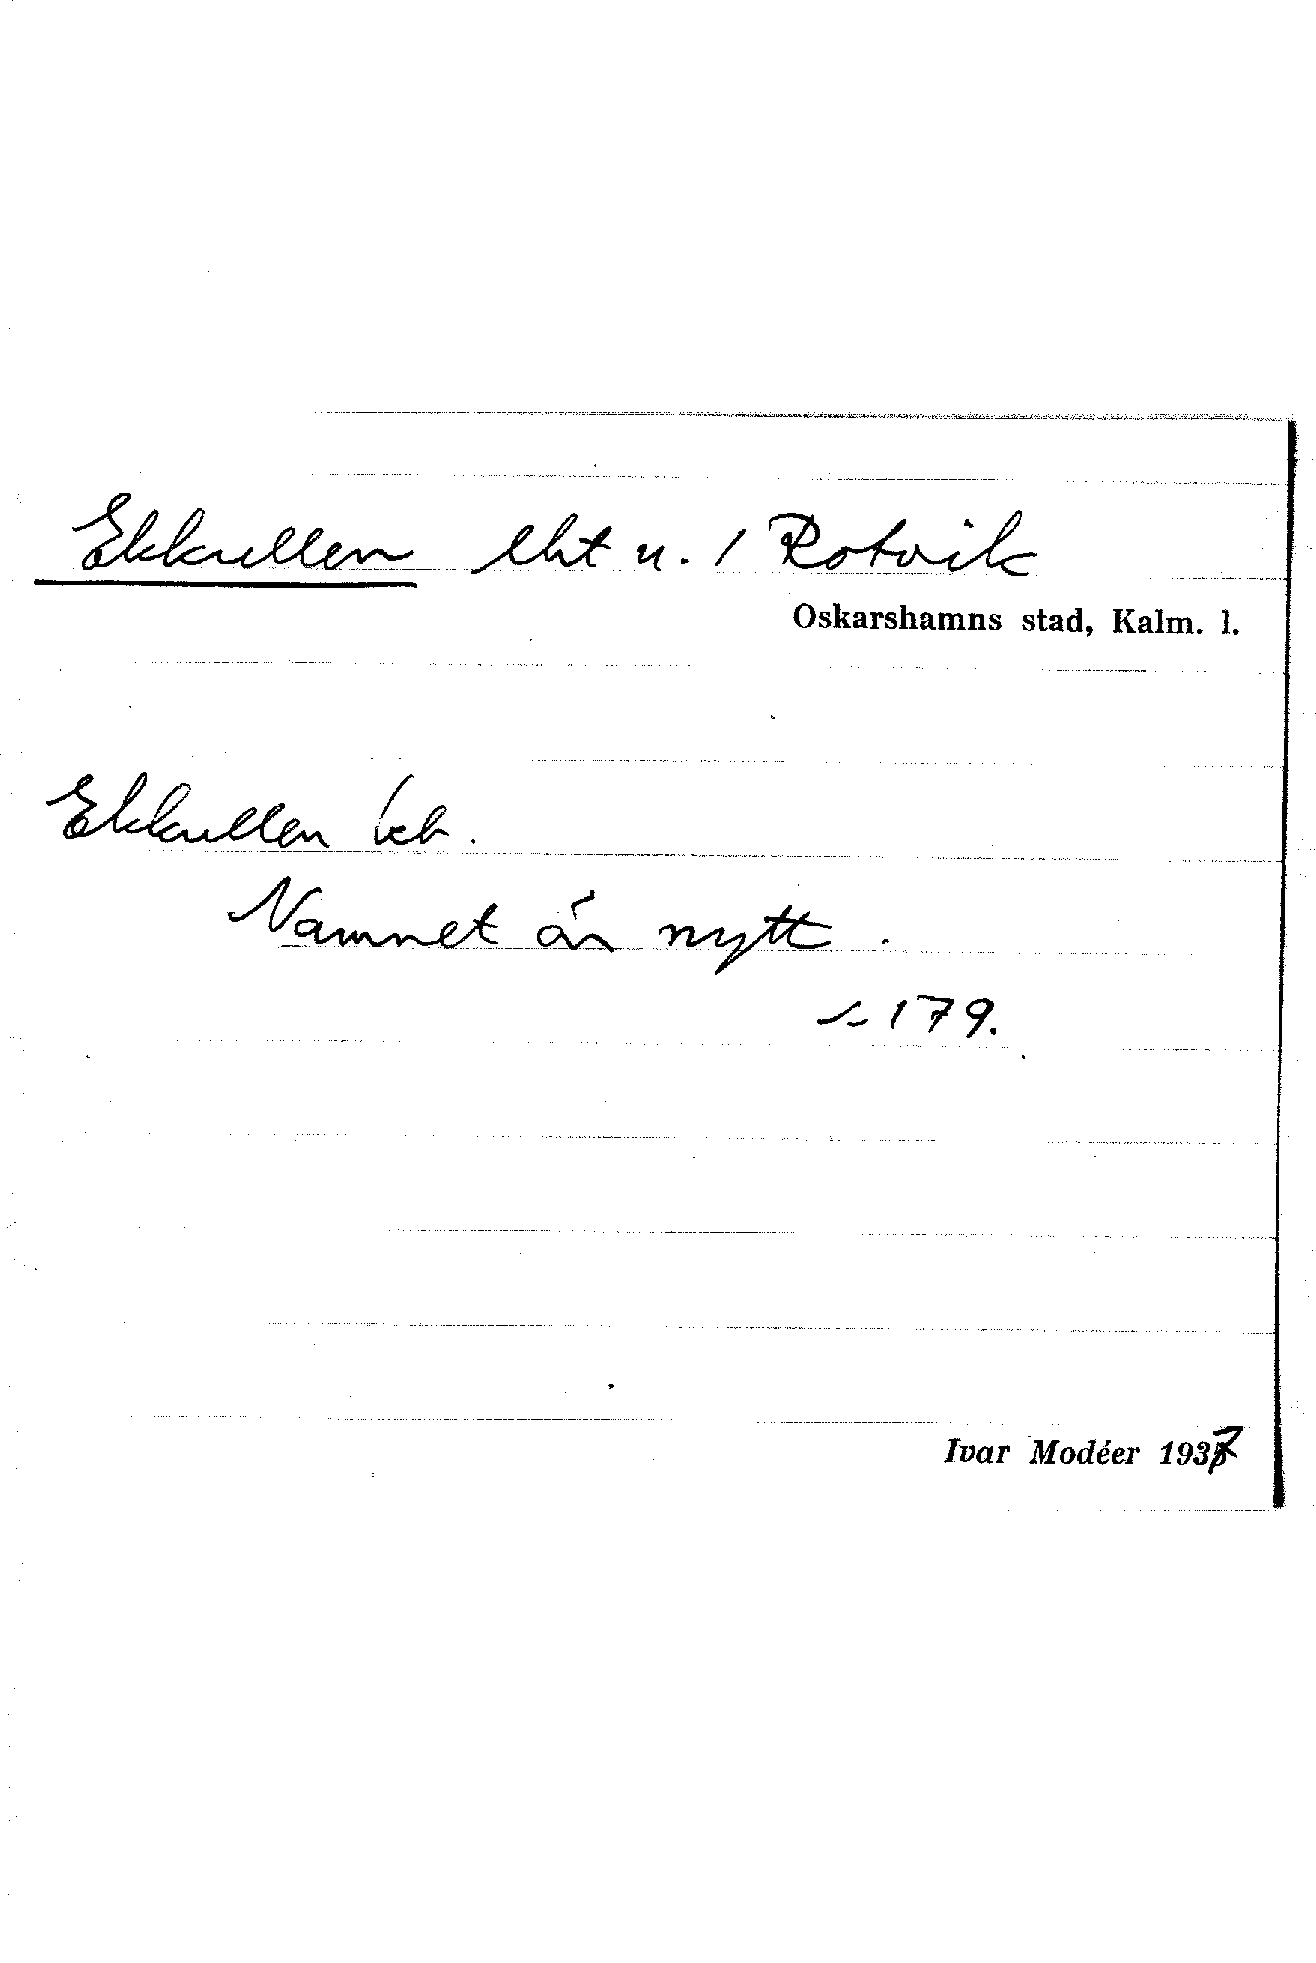 Ekkullen lht u. / Rotvik
Oskarshamns stad, Kalm. l.
Ekkullen kb.
Namnet är nytt.
s. 179.
Ivar Modéer 1937